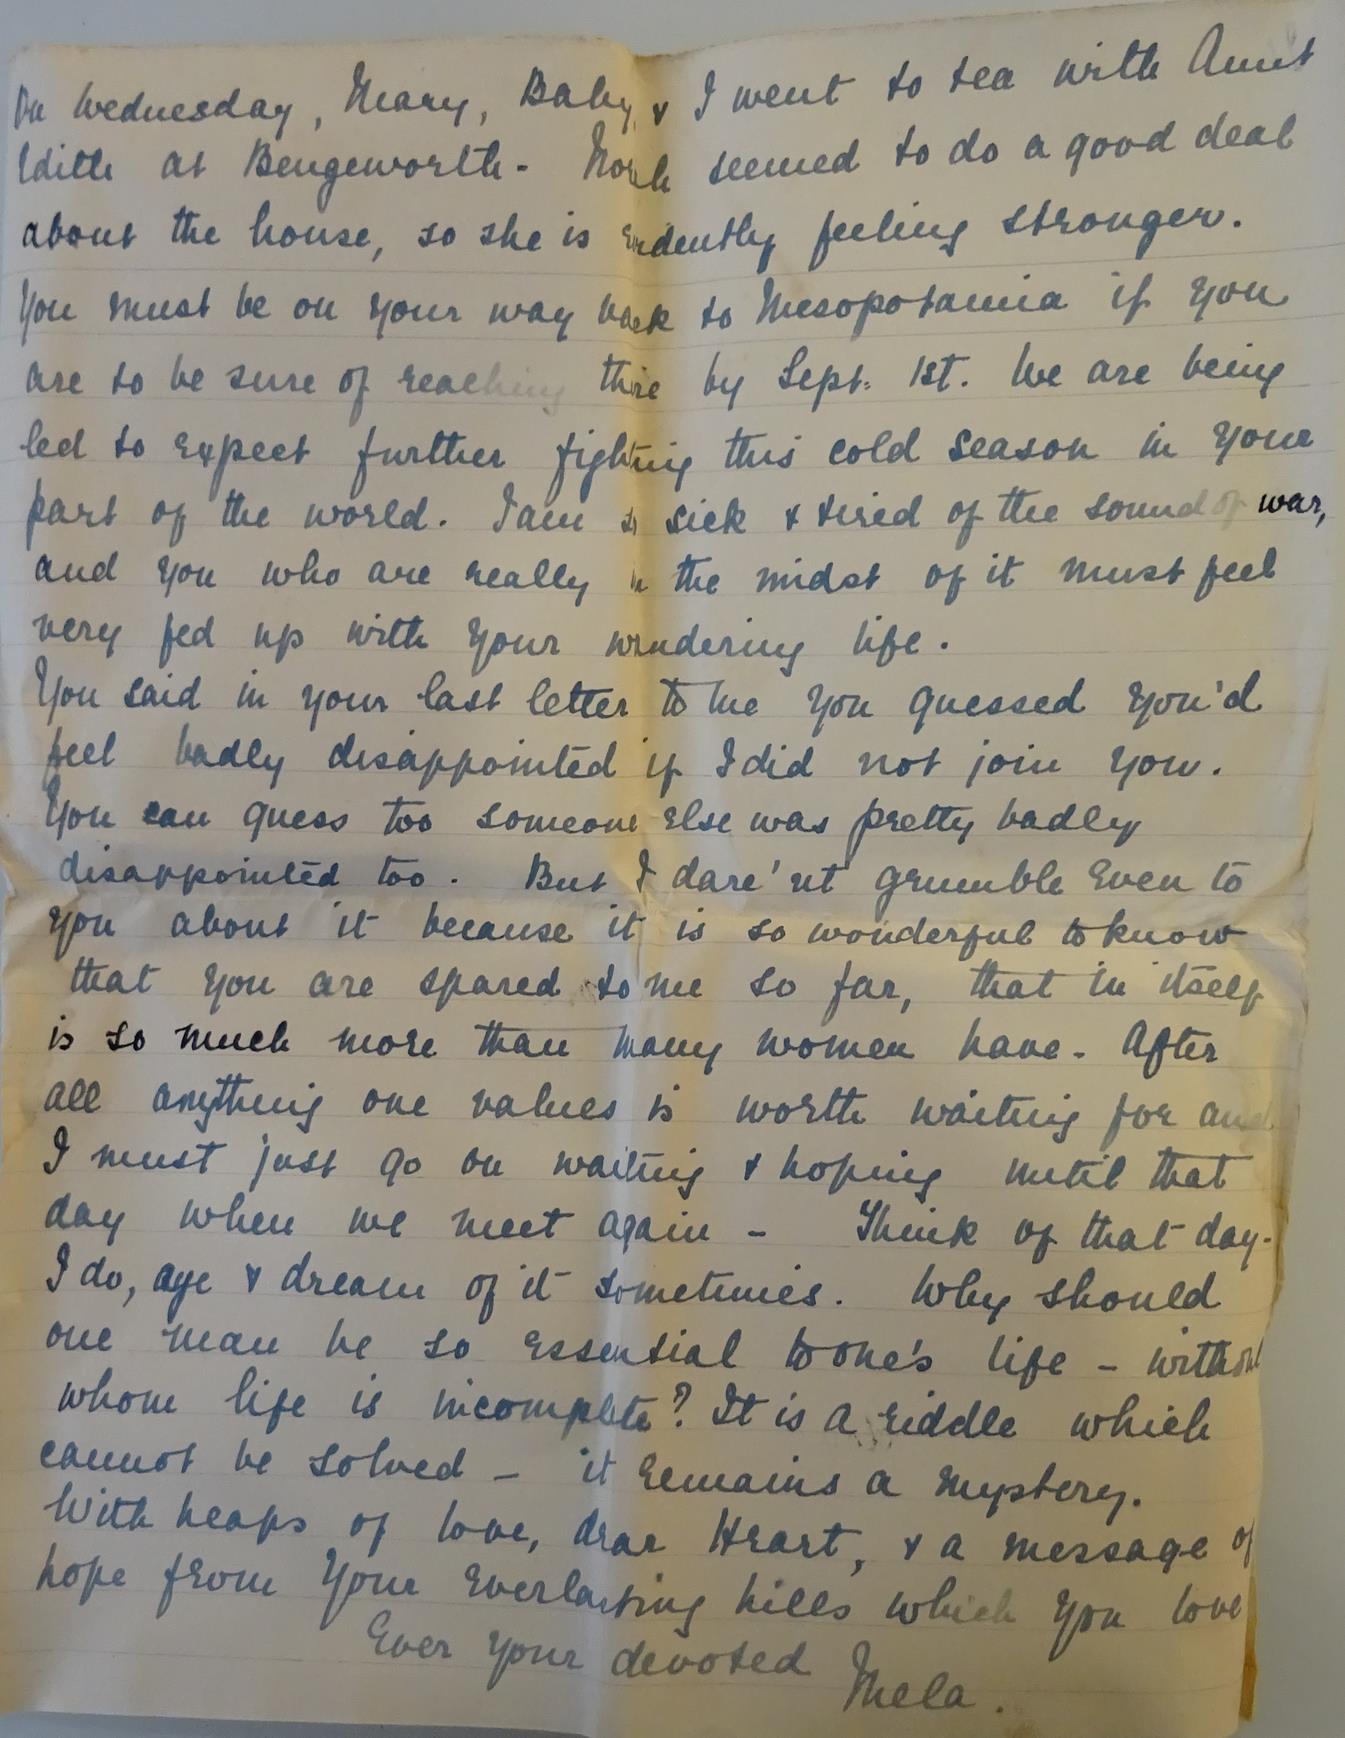 On Wednesday, Mary, Baby, & I went to tea with Aunt
Edith at Bengeworth - Norah seemed to do a good deal
about the house, so she is evidently feeling stronger.
You must be on your way back to Mesopotamia if you
are to be sure of reaching there by Sept. 1st. We are being
led to expect further fighting this cold season in your
part of the world. I am so sick & tired of the sound of war,
and you who are really in the midst of it must feel
very fed up with your wandering life.
You said in your last letter to me you guessed you'd
feel badly disappointed if I did not join you.
You can guess too someone else was pretty badly
disappointed too. But I dare'nt grumble even to
you about it because it is so wonderful to know
that you are spared to me so far, that in itself
is so much more than many women have - After
all anything one values is worth waiting for and
I must just go on waiting & hoping until that
day when we meet again - Think of that day -
I do, aye & dream of it sometimes. Why should
one man be so essential to one's life - without
whom life is incomplete? It is a riddle which
cannot be solved - it remains a mystery.
With heaps of love, dear Heart, & a message of
hope from your everlasting hills which you love
Ever your devoted
Mela.